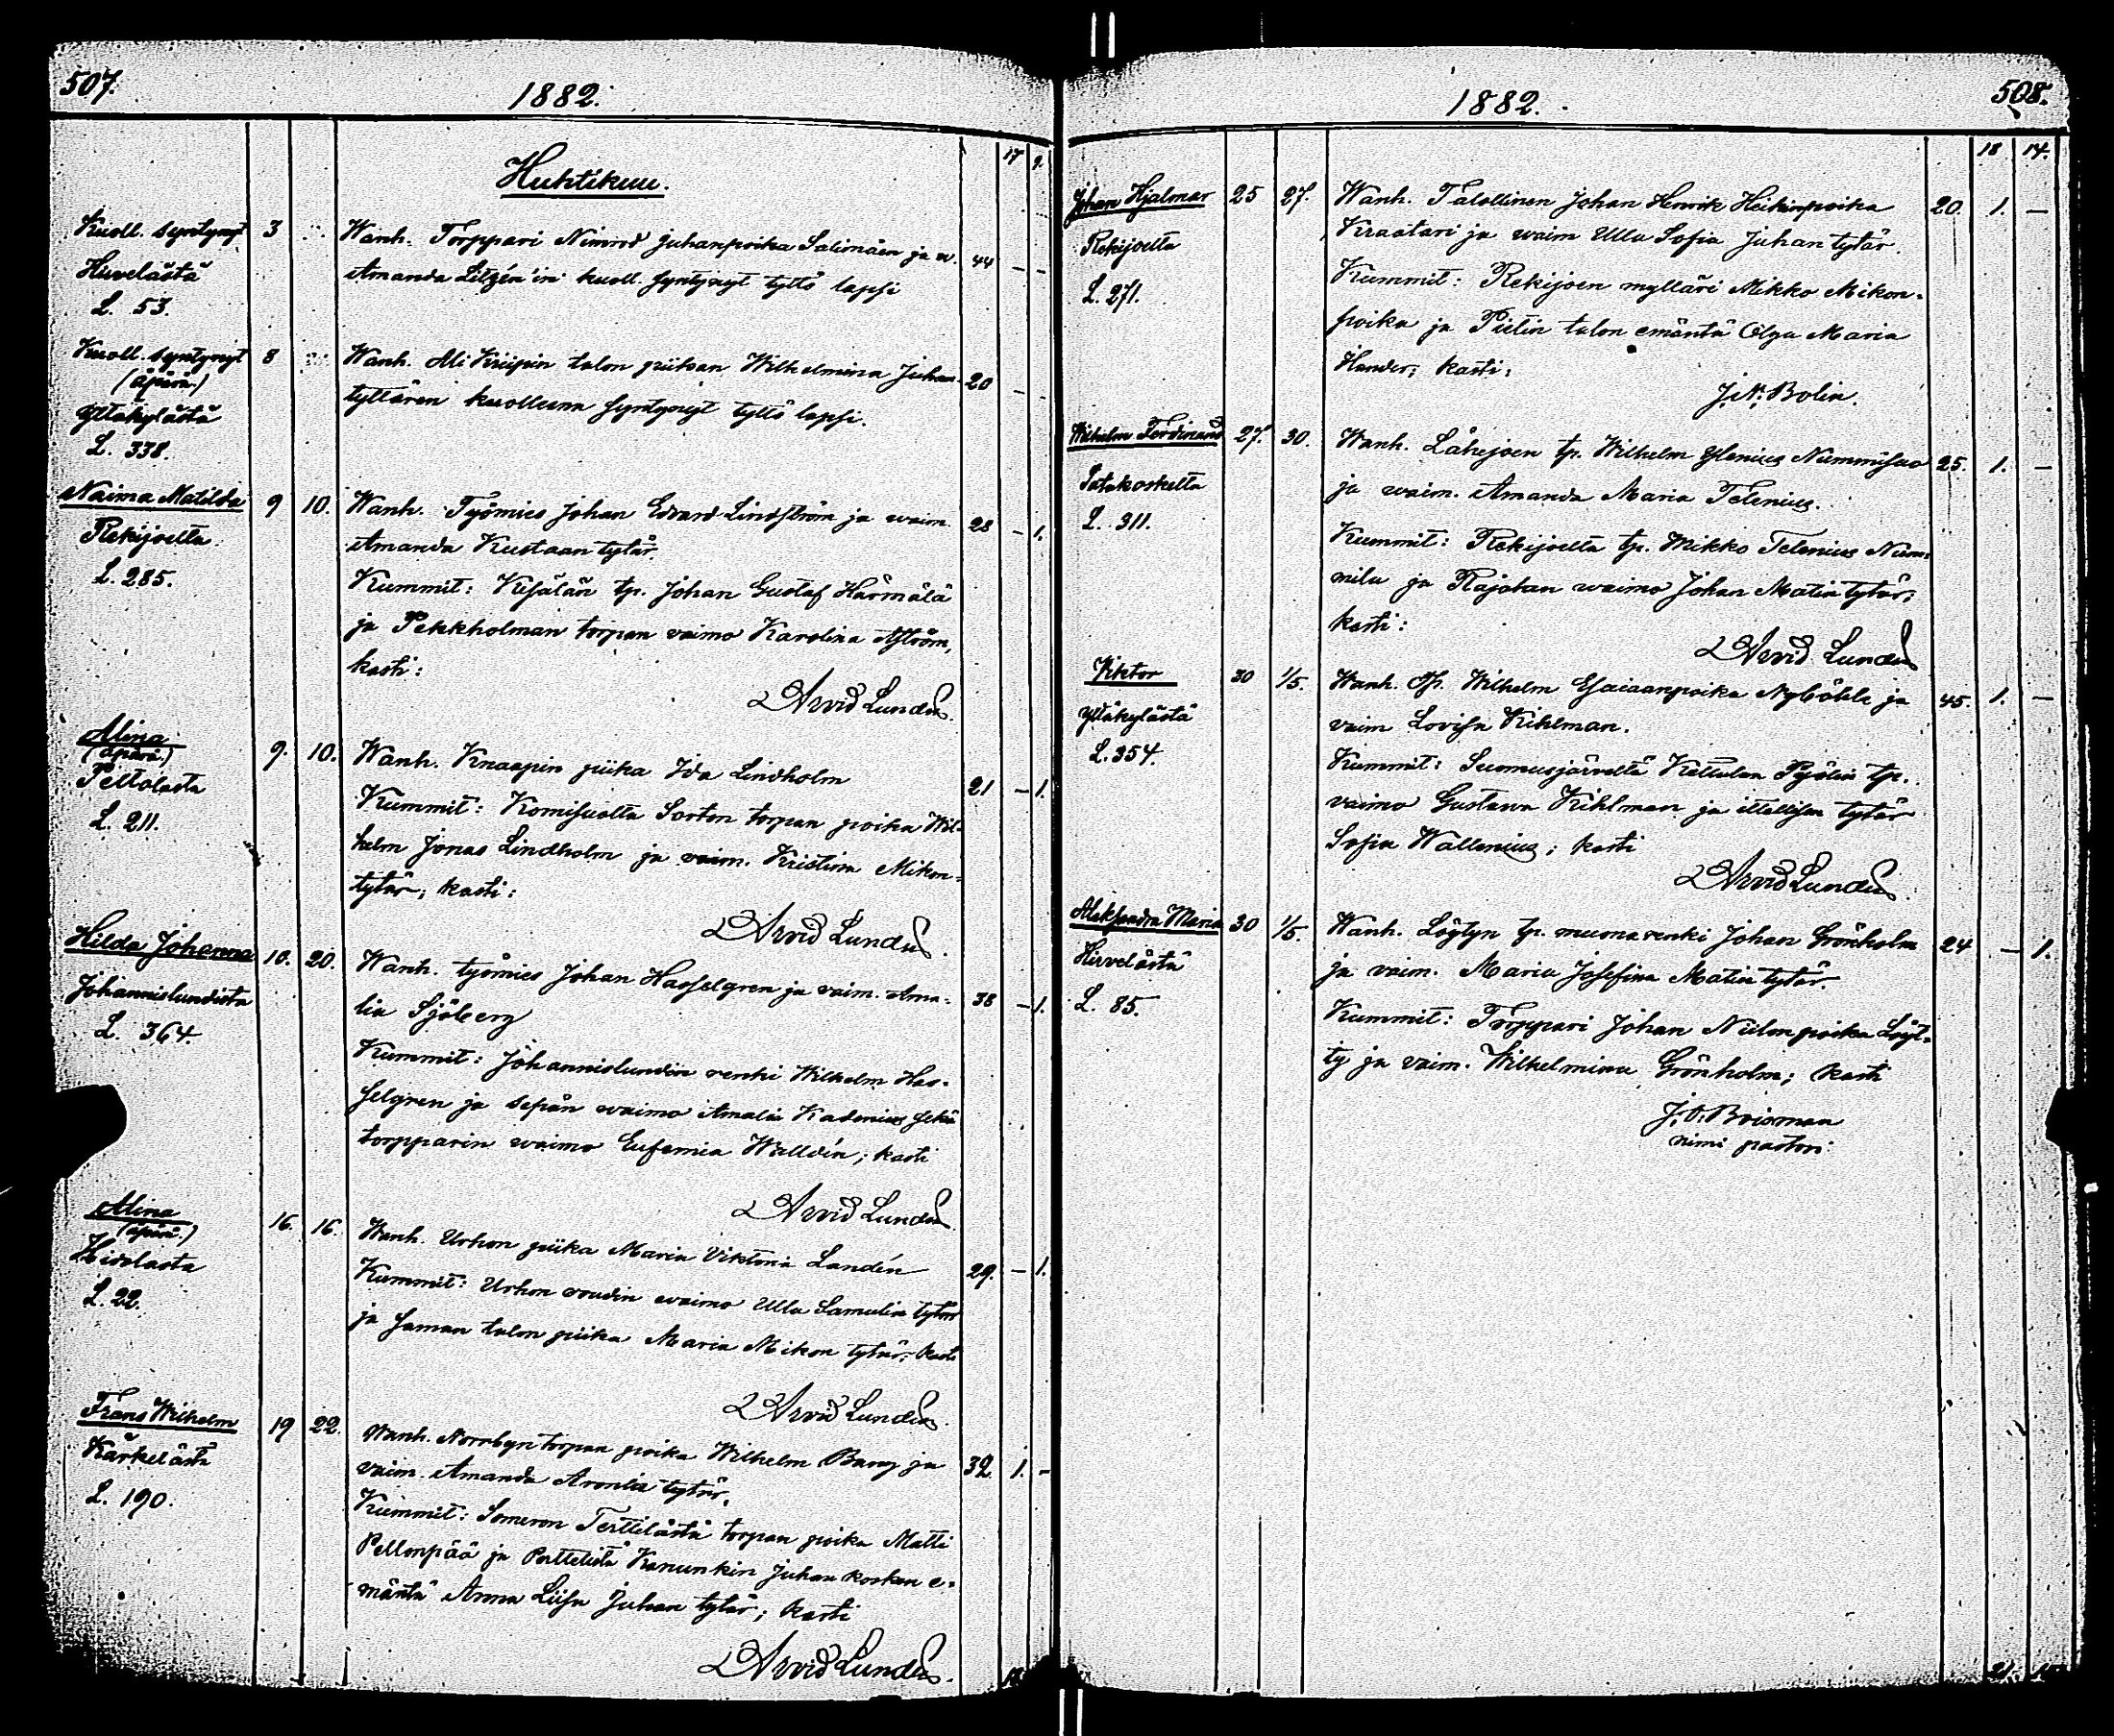 507.
1882.
17 9.
Huhtikuu.
Kuoll. syntynyt 3 Wanh. Torppari Nimrod Juhanpoika Salimäen ja w. 44 — —
Hirvelästä Amanda Litzén'in kuoll. syntynyt tyttö lapsi
L. 53.
Kuoll. syntynyt 8 Wanh. Ali Kriipin talon piikan Wilhelmina Juhan- 20 — —
(äpärä.) tyttären kuolleena syntynyt tyttö lapsi.
Yltäkylästä
L. 338.
Naima Matilda 9 10. Wanh. Työmies Johan Edvard Lindström ja waim. 28 — 1.
Rekijoelta Amanda Kustaan tytär
L. 285. Kummit: Kesälän tp. Johan Gustaf Härmälä
ja Pekkholman torpan vaimo Karolina Åström,
kasti:
Arvid Lundén.
Alina 9. 10. Wanh. Knaapin piika Ida Lindholm 21 — 1.
(äpärä.) Kummit: Komisuolta Sorton torpan poika Wil-
Peltolasta helm Jonas Lindholm ja vaim. Kristina Mikon-
L. 211. tytär; kasti:
Arvid Lundén.
Hilda Johanna 10. 20. Wanh. työmies Johan Hasselgren ja vaim. Ama- 38 — 1.
Johannislundista lia Sjöberg
L. 364. Kummit: Johannislundin renki Wilhelm Has-
selgren ja sepän waimo Amalia Kadenius sekä
torpparin waimo Eufemia Walldén; kasti
Arvid Lundén.
Alina 16. 16. Wanh. Urhon piika Maria Viktoria Landén 29. — 1.
(äpärä.) Kummit: Urhon voudin waimo Ulla Samulin tytär
L. 22. ja saman talon piika Maria Mikon tytär; kasti
Arvid Lundén.
Frans Wilhelm 19 22. Wanh. Norrbyn torpan poika Wilhelm Bang ja 32. 1. —
Kärkelästä vaim. Amanda Aronin tytär.
L. 190. Kummit: Someron Terttilästä torpan poika Matti
Pellonpää ja Perttelistä Kanunkin Juhan kosken e-
mäntä Anna Liisa Juhan tytär; kasti
Arvid Lundén.
508.
1882.
18 14.
Johan Hjalmar 25 27. Wanh. Talollinen Johan Henrik Heikinpoika 20. 1. —
Rekijoelta Kraatari ja waim Ulla Sofia Juhan tytär.
L. 271. Kummit: Rekijoen mylläri Mikko Mikon-
poika ja Pietin talon emäntä Olga Maria
Hander; kasti:
J. N. Bolin.
Wilhelm Ferdinand 27. 30. Wanh. Lähejoen tp. Wilhelm Ylenius Nummisuo 25. 1. —
Patakoskelta ja waim. Amanda Maria Telenius.
L. 311. Kummit: Rekijoelta tp. Mikko Telenius Num-
mila ja Rajatan waimo Johan Matin tytär;
kasti:
Arvid Lundén
Viktor 30 1/5. Wanh. Wilhelm Esaiaanpoika Nyböhle ja 45. 1. —
Yltäkylästä vaim Lovisa Kihlman.
L. 354. Kummit: Suomusjärveltä Kettulan Pyölin tp.
vaimo Gustava Kihlman ja itsellisen tytär
Sofia Wallenius; kasti
Arvid Lundén.
Aleksandra Maria 30 1/5. Wanh. Löytyn tp. muona renki Johan Grönholm 24 — 1.
Hirvelästä ja vaim. Maria Josefina Matin tytär.
L. 85. Kummit: Torppari Johan Niilon poika Löyt-
ty ja vaim. Wilhelmina Grönholm; kasti
J. O. Boisman
nimi pastori.